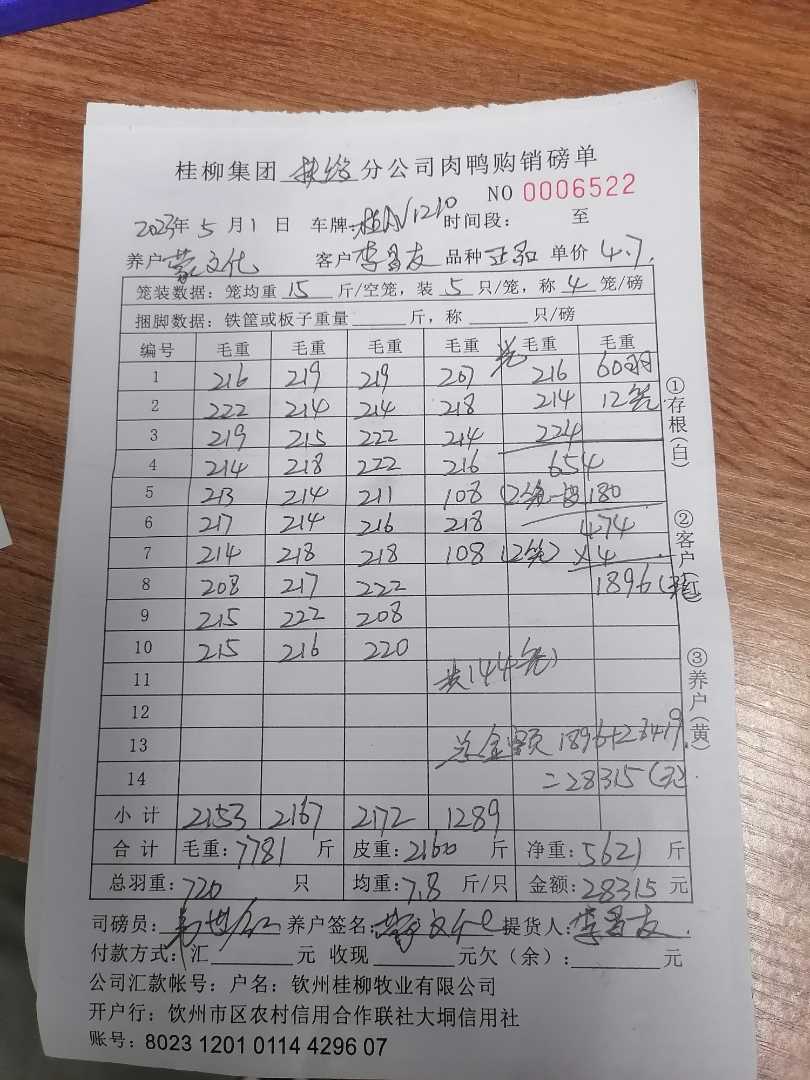 桂柳集团 扶绥 分公司肉鸭购销磅单
NO 0006522
2023年 5 月 1 日 车牌: 1210 时间段: 至
养户 蒙文化 客户 李昌友 品种 单价 4.7
笼装数据: 笼均重 15 斤/空笼, 装 5 只/笼, 称 4 笼/磅
捆脚数据: 铁筐或板子重量 斤, 称 只/磅
编号 毛重 毛重 毛重 毛重 毛重 毛重
1 216 219 219 207 216 60羽
2 222 214 214 218 214 12笼
3 219 215 222 214 224
4 214 218 222 216 654
5 213 214 211 108 (2笼 180
6 217 214 216 218 474
7 214 218 218 108 (2笼) ×4
8 208 217 222 1896
9 215 222 208
10 215 216 220
11 共144笼
12
13 总金额 1896+23419
14 =28315(元)
小计 2153 2167 2172 1289
合计 毛重: 7781 斤 皮重: 2160 斤 净重: 5621 斤
总羽重: 720 只 均重: 7.8 斤/只 金额: 28315 元
司磅员: 养户签名: 蒙文化 提货人: 李昌友
付款方式: 汇 元 收现 元欠(余): 元
公司汇款帐号: 户名: 钦州桂柳牧业有限公司
开户行: 钦州市区农村信用合作联社大垌信用社
账号: 8023 1201 0114 4296 07
①存根(白)
②客户(红)
③养户(黄)